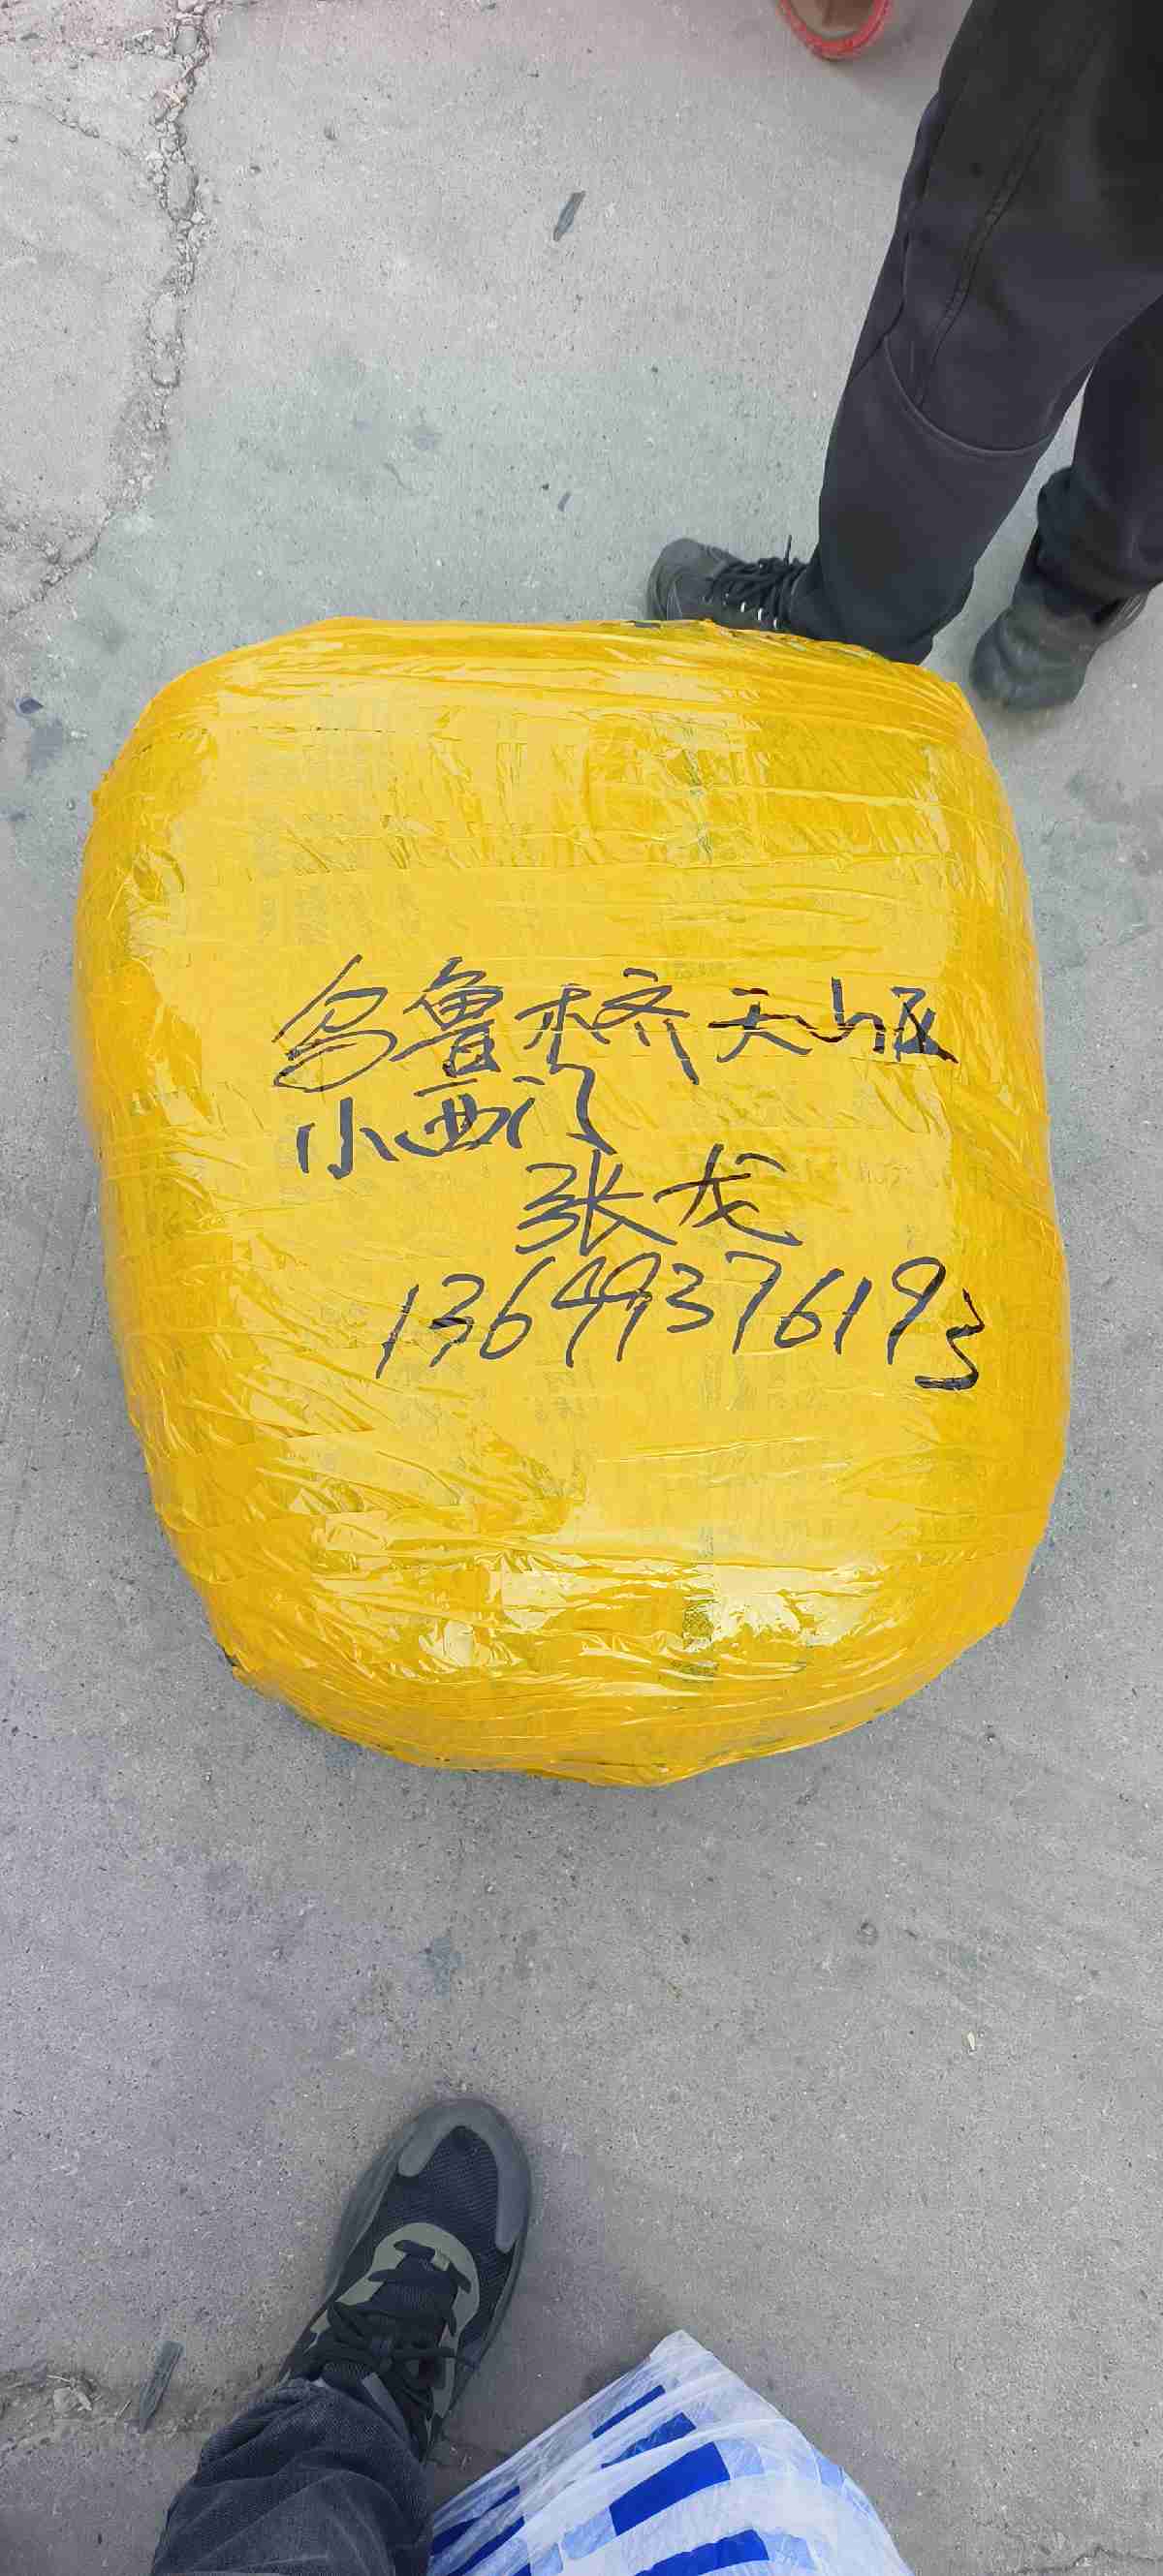 乌鲁木齐天山区
小西门
张龙
13649376193